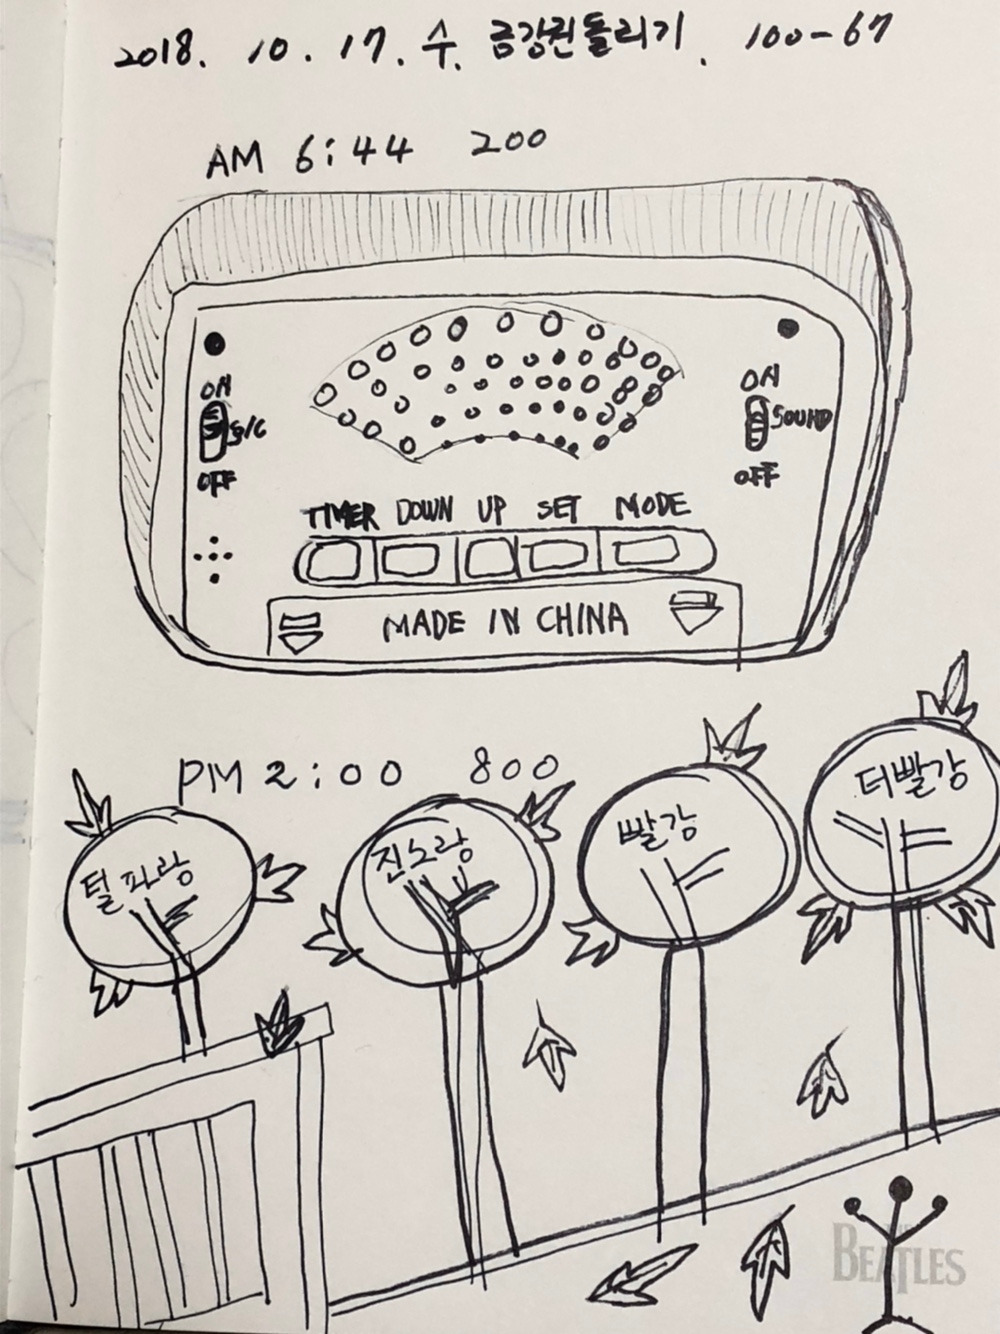 2018. 10. 17. 수. 금강권돌리기. 100-67
AM 6:44 200
ON
S/C
OFF
ON
SOUND
OFF
TIMER DOWN UP SET MODE
MADE IN CHINA
PM 2:00 800
털파랑
진노랑
빨강
더빨강
THE
BEATLES